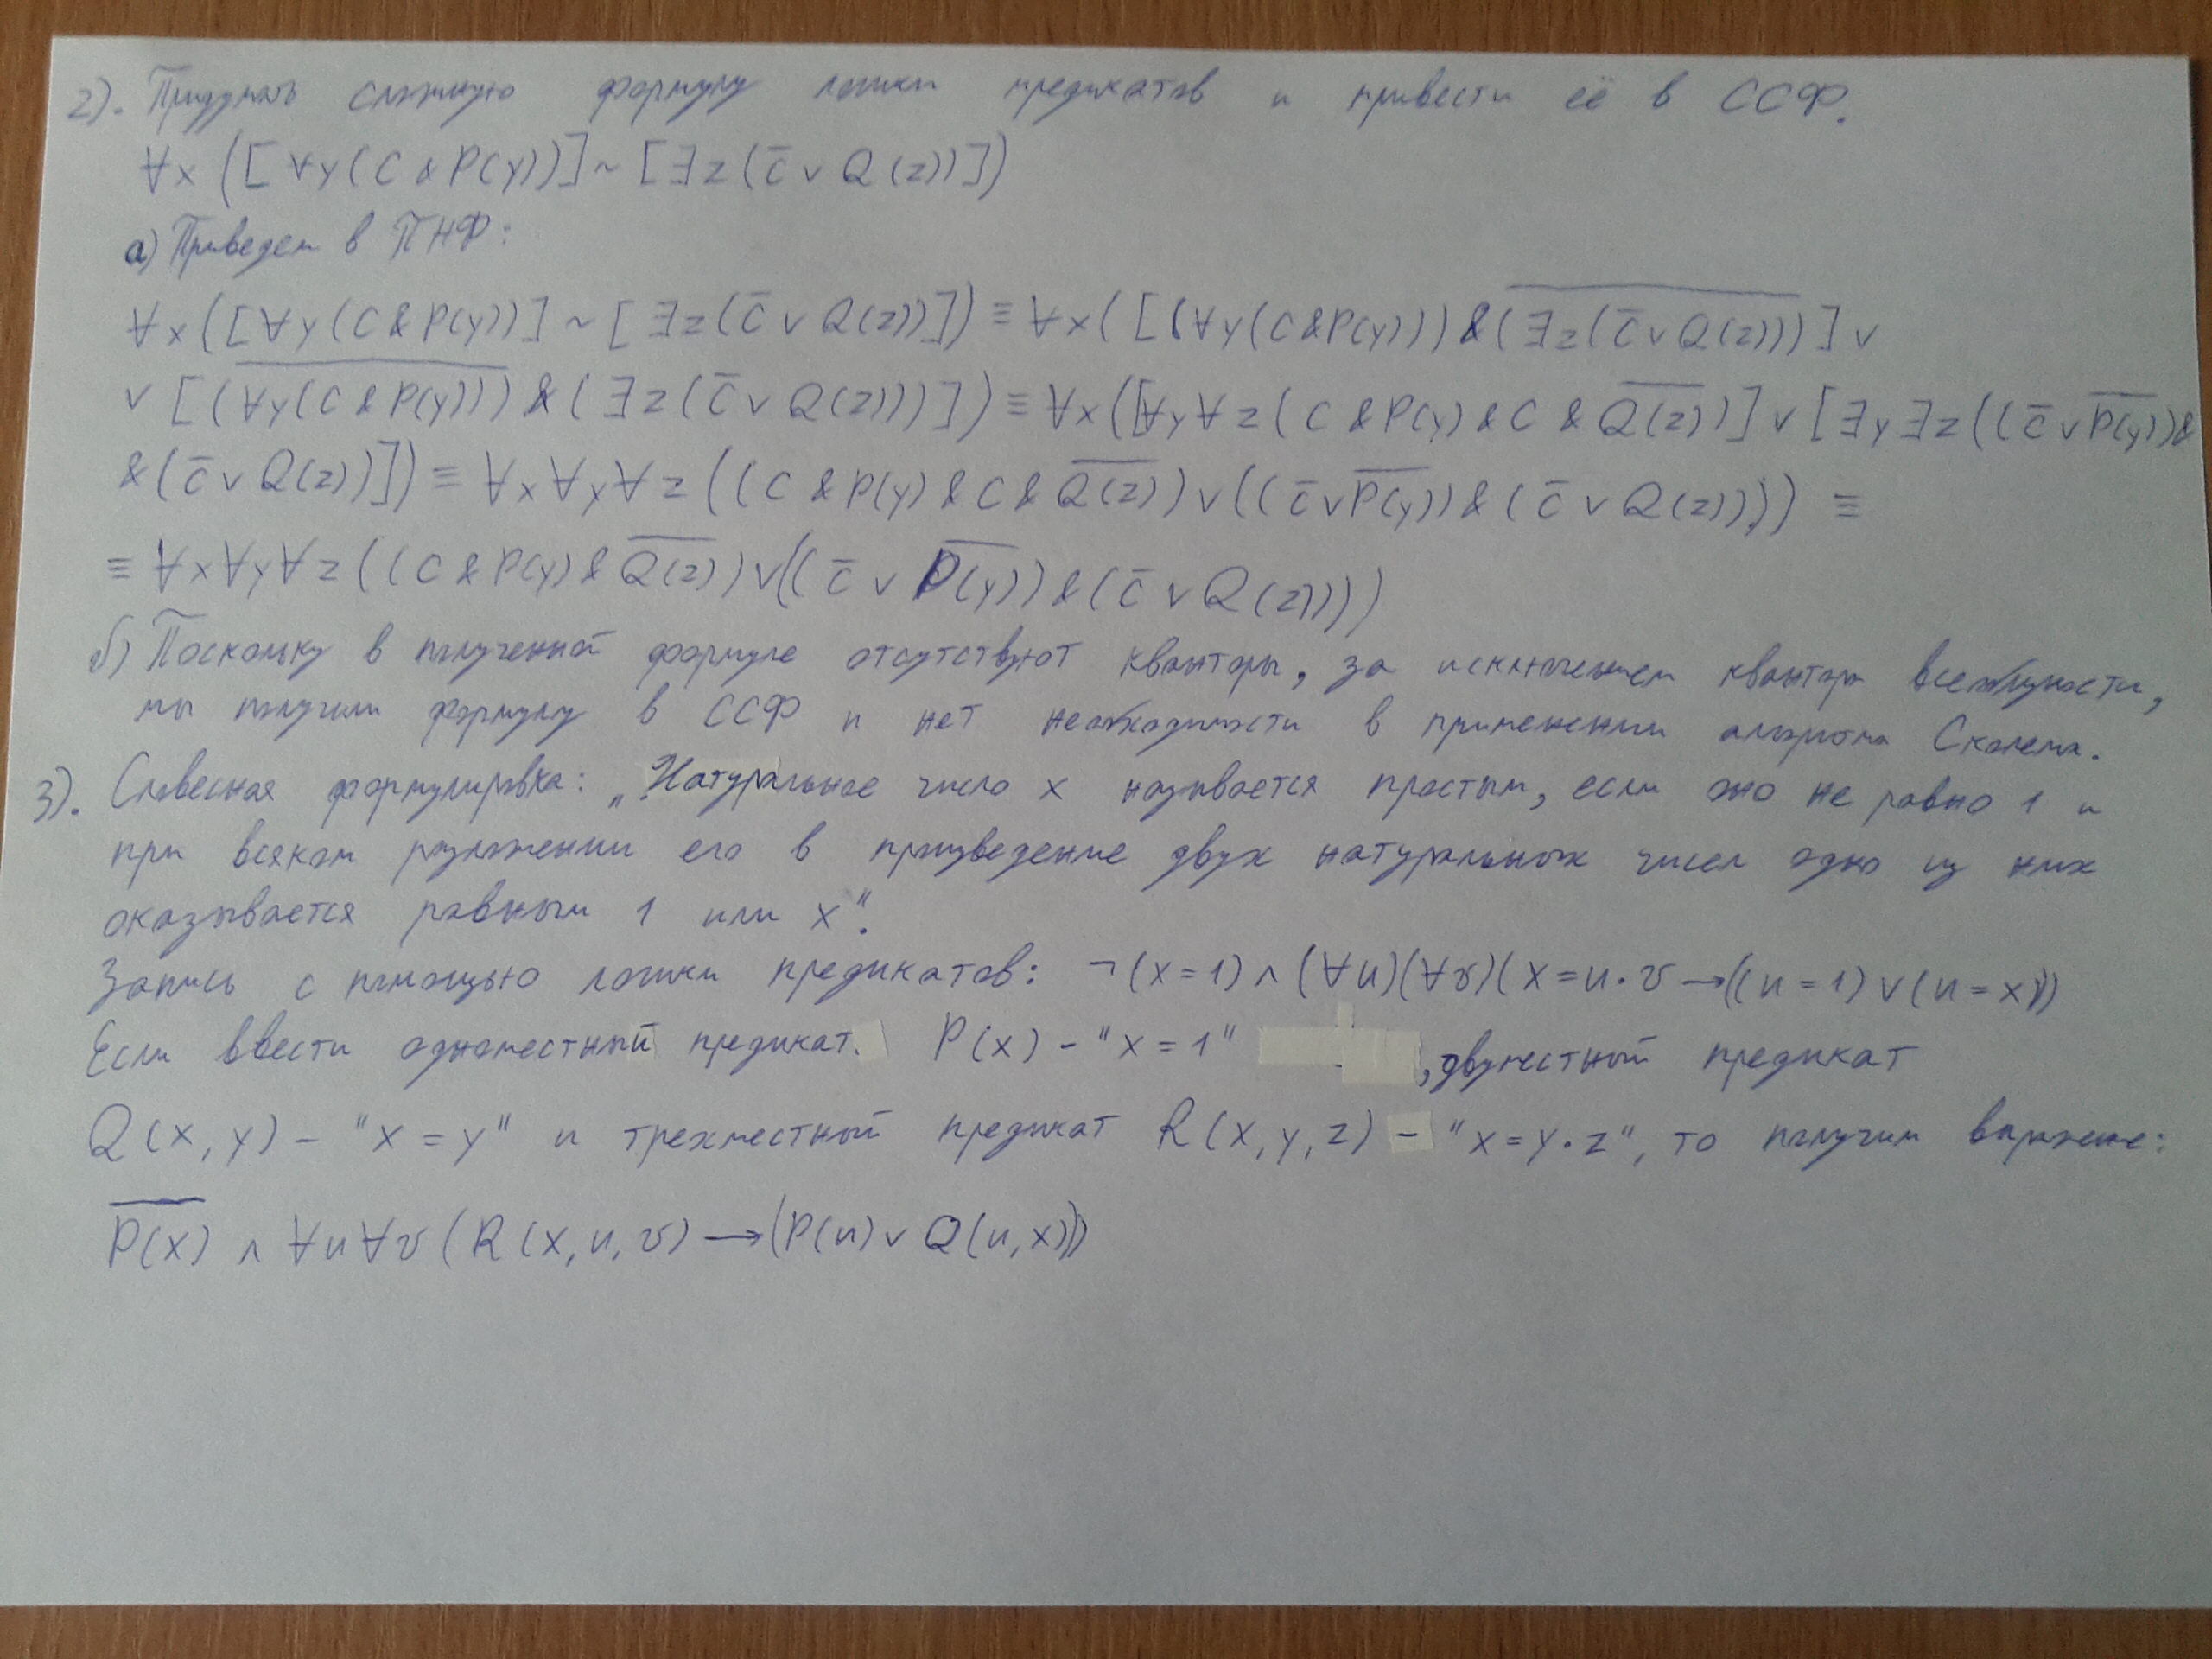 2). Придумать сложную формулу логики предикатов и привести её в ССФ.
∀x([∀y(C & P(y))] ~ [∃z(C̅ ∨ Q(z))])
а) Приведем в ПНФ:
∀x([∀y(C & P(y))] ~ [∃z(C̅ ∨ Q(z))]) ≡ ∀x([(∀y(C & P(y))) & (\overline{∃z(C̅ ∨ Q(z))})] ∨
∨ [(\overline{∀y(C & P(y))}) & (∃z(C̅ ∨ Q(z)))]) ≡ ∀x([∀y∀z(C & P(y) & C & \overline{Q(z)})] ∨ [∃y∃z((C̅ ∨ \overline{P(y)}) &
& (C̅ ∨ Q(z))]) ≡ ∀x∀y∀z((C & P(y) & C & \overline{Q(z)}) ∨ ((C̅ ∨ \overline{P(y)}) & (C̅ ∨ Q(z)))) ≡
≡ ∀x∀y∀z((C & P(y) & \overline{Q(z)}) ∨ ((C̅ ∨ \overline{P(y)}) & (C̅ ∨ Q(z))))
б) Поскольку в полученной формуле отсутствуют кванторы, за исключением квантора всеобщности,
мы получили формулу в ССФ и нет необходимости в применении алгоритма Сколема.
3). Словесная формулировка: „Натуральное число x называется простым, если оно не равно 1 и
при всяком разложении его в произведение двух натуральных чисел одно из них
оказывается равным 1 или x".
Запись с помощью логики предикатов: ¬(x=1) ∧ (∀u)(∀v)(x=u·v → ((u=1) ∨ (u=x)))
Если ввести одноместный предикат. P(x) – "x=1" , двуместный предикат
Q(x,y) – "x=y" и трехместный предикат R(x,y,z) – "x=y·z", то получим выражение:
\overline{P(x)} ∧ ∀u∀v(R(x,u,v) → (P(u) ∨ Q(u,x)))